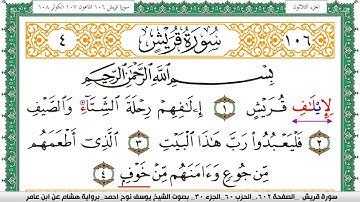 الجزء الثلاثون
سورة قريش ١٠٦ الماعون ١٠٧ الكوثر ١٠٨
١٠٦ سُورَةُ قُرَيْشٍ ٤
بِسْمِ اللَّهِ الرَّحْمَٰنِ الرَّحِيمِ
لِإِيلَافِ قُرَيْشٍ ١ إِۦلَافِهِمْ رِحْلَةَ الشِّتَاءِ وَالصَّيْفِ
٢ فَلْيَعْبُدُوا رَبَّ هَٰذَا الْبَيْتِ ٣ الَّذِي أَطْعَمَهُم
مِّن جُوعٍ وَءَامَنَهُم مِّنْ خَوْفٍ ٤
سورة قريش _ الصفحة ٦٠٢ _ الحزب ٦٠ _ الجزء ٣٠ _ بصوت الشيخ يوسف نوح احمد _ برواية هشام عن ابن عامر